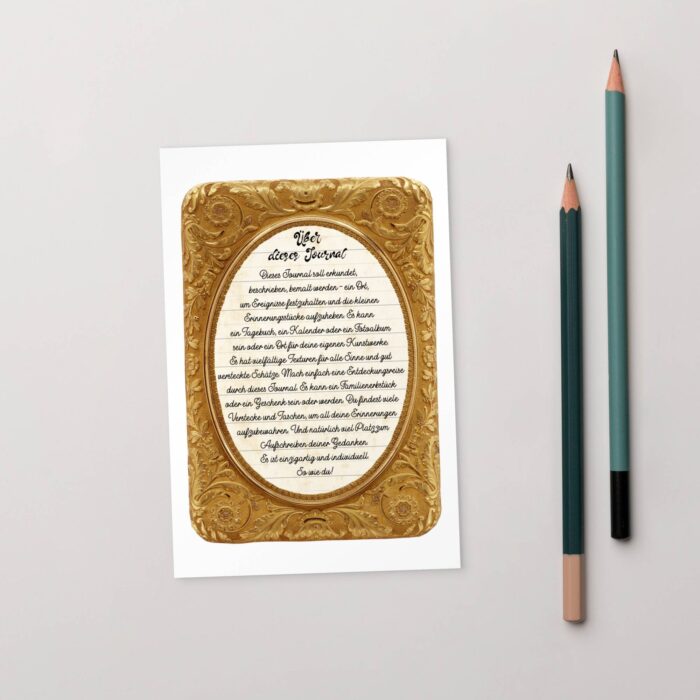 Über
dieses Journal
Dieses Journal soll erkundet,
beschrieben, bemalt werden - ein Ort,
um Ereignisse festzuhalten und die kleinen
Erinnerungsstücke aufzuheben. Es kann
ein Tagebuch, ein Kalender oder ein Fotoalbum
sein oder ein Ort für deine eigenen Kunstwerke.
Es hat vielfältige Texturen für alle Sinne und gut
versteckte Schätze. Mach einfach eine Entdeckungsreise
durch dieses Journal. Es kann ein Familienerbstück
oder ein Geschenk sein oder werden. Du findest viele
Verstecke und Taschen, um all deine Erinnerungen
aufzubewahren. Und natürlich viel Platz zum
Aufschreiben deiner Gedanken.
Es ist einzigartig und individuell.
So wie du!